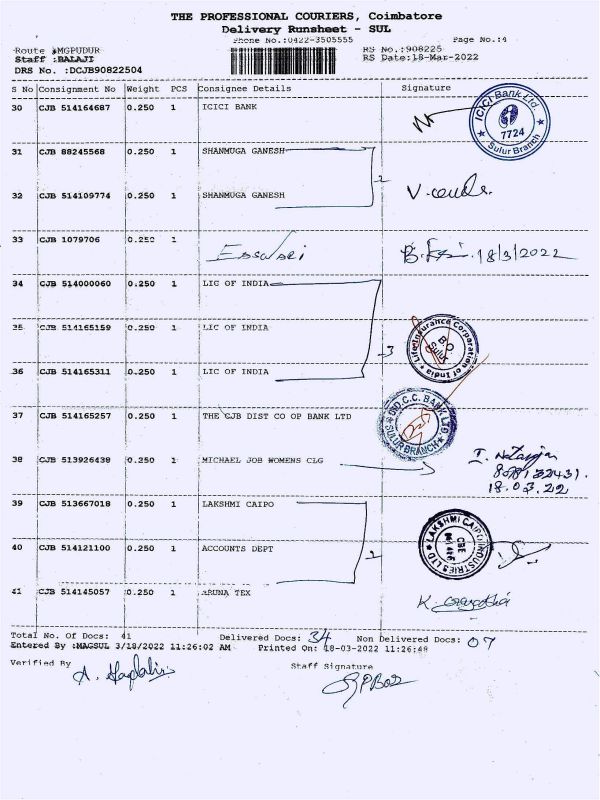 THE PROFESSIONAL COURIERS, Coimbatore
Delivery Runsheet - SUL
Phone No.:0422-3505555 Page No.:4
Route :MGPUDUR RS No.:908225
Staff :BALAJI RS Date:18-Mar-2022
DRS No. :DCJB90822504
S No Consignment No Weight PCS Consignee Details Signature
30 CJB 514164687 0.250 1 ICICI BANK
ICICI Bank Ltd.
7724
Sulur Branch
31 CJB 88245568 0.250 1 SHANMUGA GANESH
2
32 CJB 514109774 0.250 1 SHANMUGA GANESH
33 CJB 1079706 0.250 1 18/3/2022
34 CJB 514000060 0.250 1 LIC OF INDIA
35 CJB 514165159 0.250 1 LIC OF INDIA
3
Life Insurance Corporation of India
B.O.
Sulur
36 CJB 514165311 0.250 1 LIC OF INDIA
37 CJB 514165257 0.250 1 THE CJB DIST CO OP BANK LTD
C.C. BANK LTD
SULUR BRANCH
38 CJB 513926438 0.250 1 MICHAEL JOB WOMENS CLG
18.03.22
39 CJB 513667018 0.250 1 LAKSHMI CAIPO
2
LAKSHMI CAIPO INDUSTRIES LTD
CBE
40 CJB 514121100 0.250 1 ACCOUNTS DEPT
41 CJB 514145057 0.250 1 ARUNA TEX
Total No. Of Docs: 41 Delivered Docs: 34 Non Delivered Docs: 07
Entered By :MAGSUL 3/18/2022 11:26:02 AM Printed On: 18-03-2022 11:26:48
Verified By Staff Signature